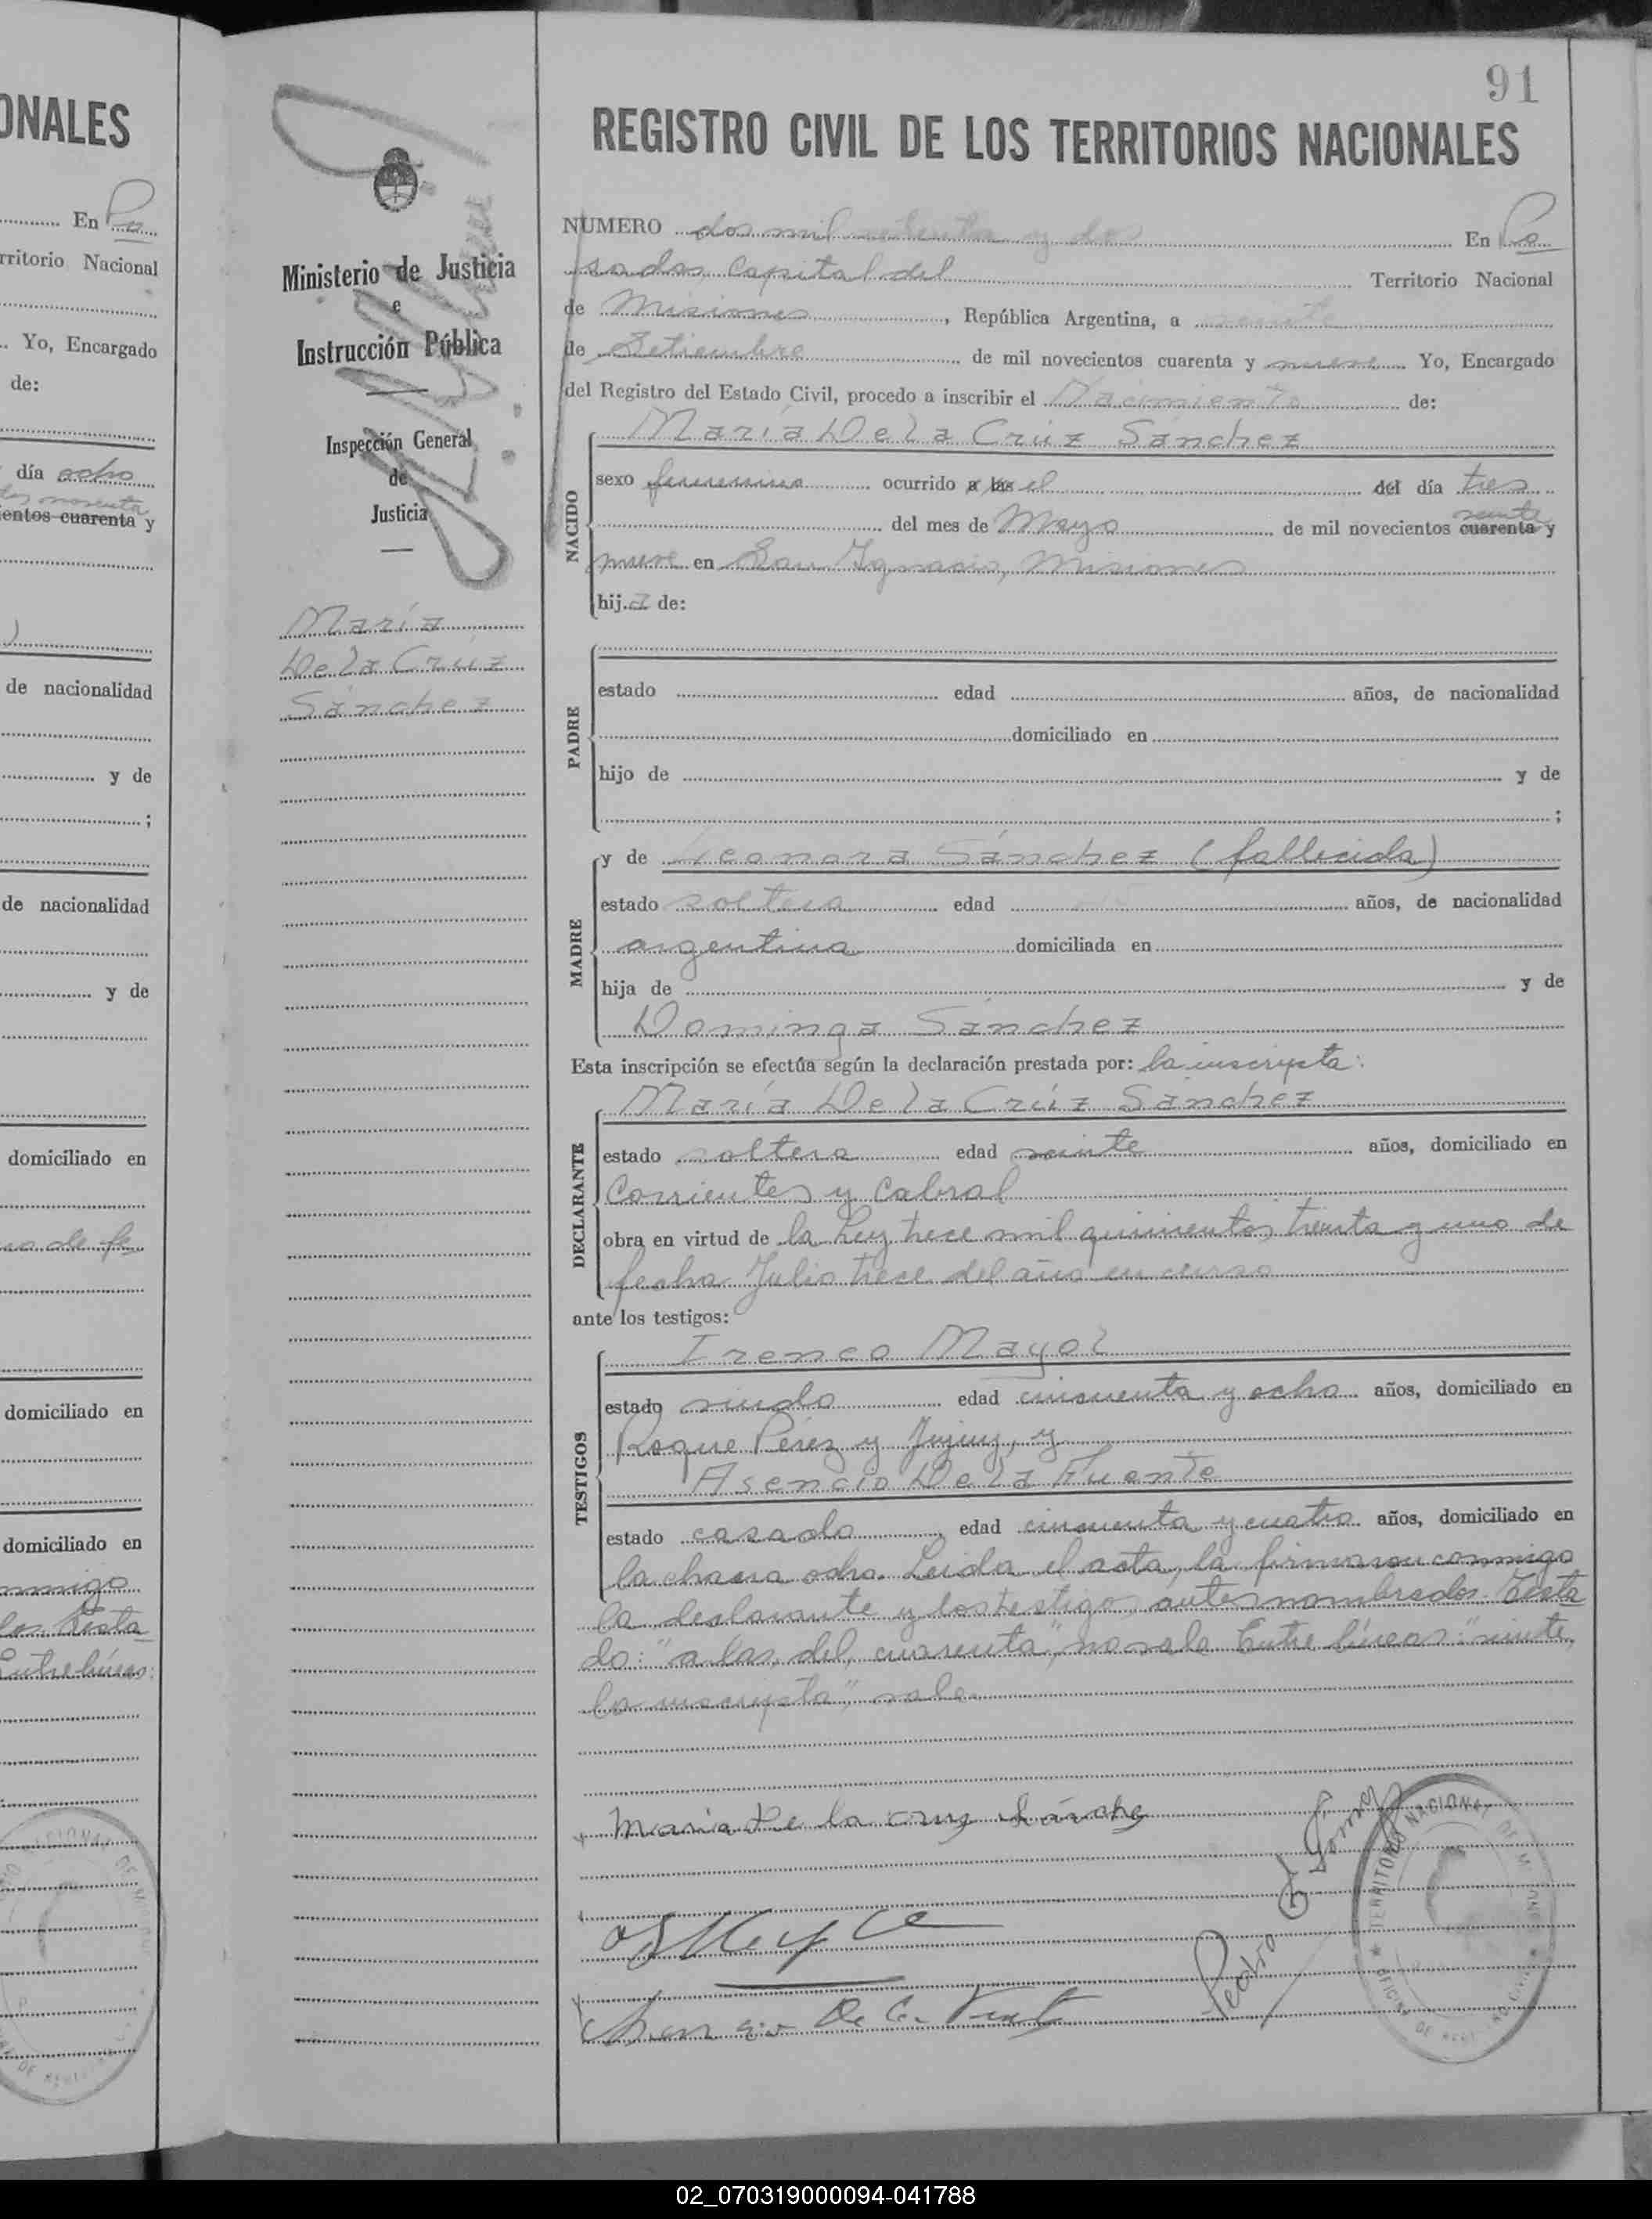 ONALES
En Po
rritorio Nacional
Yo, Encargado
de:
día ocho
dos noventa
ientos cuarenta y
)
de nacionalidad
y de
;
de nacionalidad
y de
domiciliado en
domiciliado en
domiciliado en
nmigo
los testa
Entre líneas:
Ministerio de Justicia
e
Instrucción Pública
Inspección General
de
Justicia
María
De la Cruz
Sánchez
91
REGISTRO CIVIL DE LOS TERRITORIOS NACIONALES
NUMERO dos mil setenta y dos En Po
sadas, Capital del Territorio Nacional
de Misiones, República Argentina, a veinte
de Setiembre de mil novecientos cuarenta y nueve Yo, Encargado
del Registro del Estado Civil, procedo a inscribir el Nacimiento de:
María De la Cruz Sánchez
NACIDO
sexo femenino ocurrido a las el del día tres
veinte
del mes de Mayo de mil novecientos cuarenta y
nueve en San Ignacio, Misiones
hija de:
PADRE
estado edad años, de nacionalidad
domiciliado en
hijo de y de
;
MADRE
y de Leonora Sánchez (fallecida)
estado soltera edad años, de nacionalidad
argentina domiciliada en
hija de y de
Dominga Sánchez
Esta inscripción se efectúa según la declaración prestada por: la inscripta:
DECLARANTE
María De la Cruz Sánchez
estado soltera edad veinte años, domiciliado en
Corrientes y Cabral
obra en virtud de la Ley trece mil quinientos treinta y uno de
fecha Julio trece del año en curso
ante los testigos:
TESTIGOS
Ireneo Mayol
estado viudo edad cincuenta y ocho años, domiciliado en
Roque Pérez y Jujuy, y
Asencio De la Fuente
estado casado, edad cincuenta y cuatro años, domiciliado en
la chacra ocho. Leida el acta, la firmaron conmigo
la declarante y los testigos antes nombrados. Testa
do: "a las, del, cuarenta", no vale. Entre líneas: "veinte,
la inscripta", vale.
Maria De la cruz Sánchez
Pedro
TERRITORIO NACIONAL DE
02_070319000094-041788